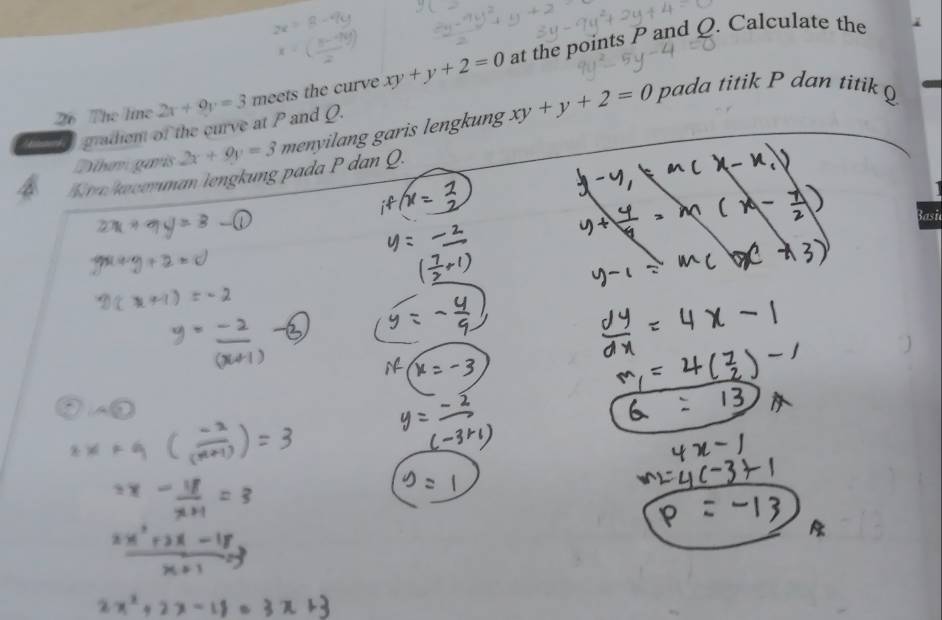 2x = 3 - 9y
3y - 9y² + 2y + 4 = 0
9y² - 5y - 4 = 0
26 The line 2x + 9y = 3 meets the curve xy + y + 2 = 0 at the points P and Q. Calculate the
gradient of the curve at P and Q.
garis 2x + 9y = 3 menyilang garis lengkung xy + y + 2 = 0 pada titik P dan titik Q.
kecerunan lengkung pada P dan Q.
Basi
2x + 9y = 3 - ①
+ y + 2 = 0
(x+1) = -2
y = -2/(x+1) - ②
2x + 9 (-2/(x+1)) = 3
2x - 18/(x+1) = 3
(2x² + 2x - 18)/(x+1) = 3
2x² + 2x - 18 = 3x + 3
if x = 7/2
y = -2/(7/2+1)
y = -4/9
if x = -3
y = -2/(-3+1)
y = 1
y - y₁ = m(x - x₁)
y + 4/9 = m(x - 7/2)
y - 1 = m(x + 3)
dy/dx = 4x - 1
m₁ = 4(7/2) - 1
Q = 13
4x - 1
m₂ = 4(-3) - 1
P = -13